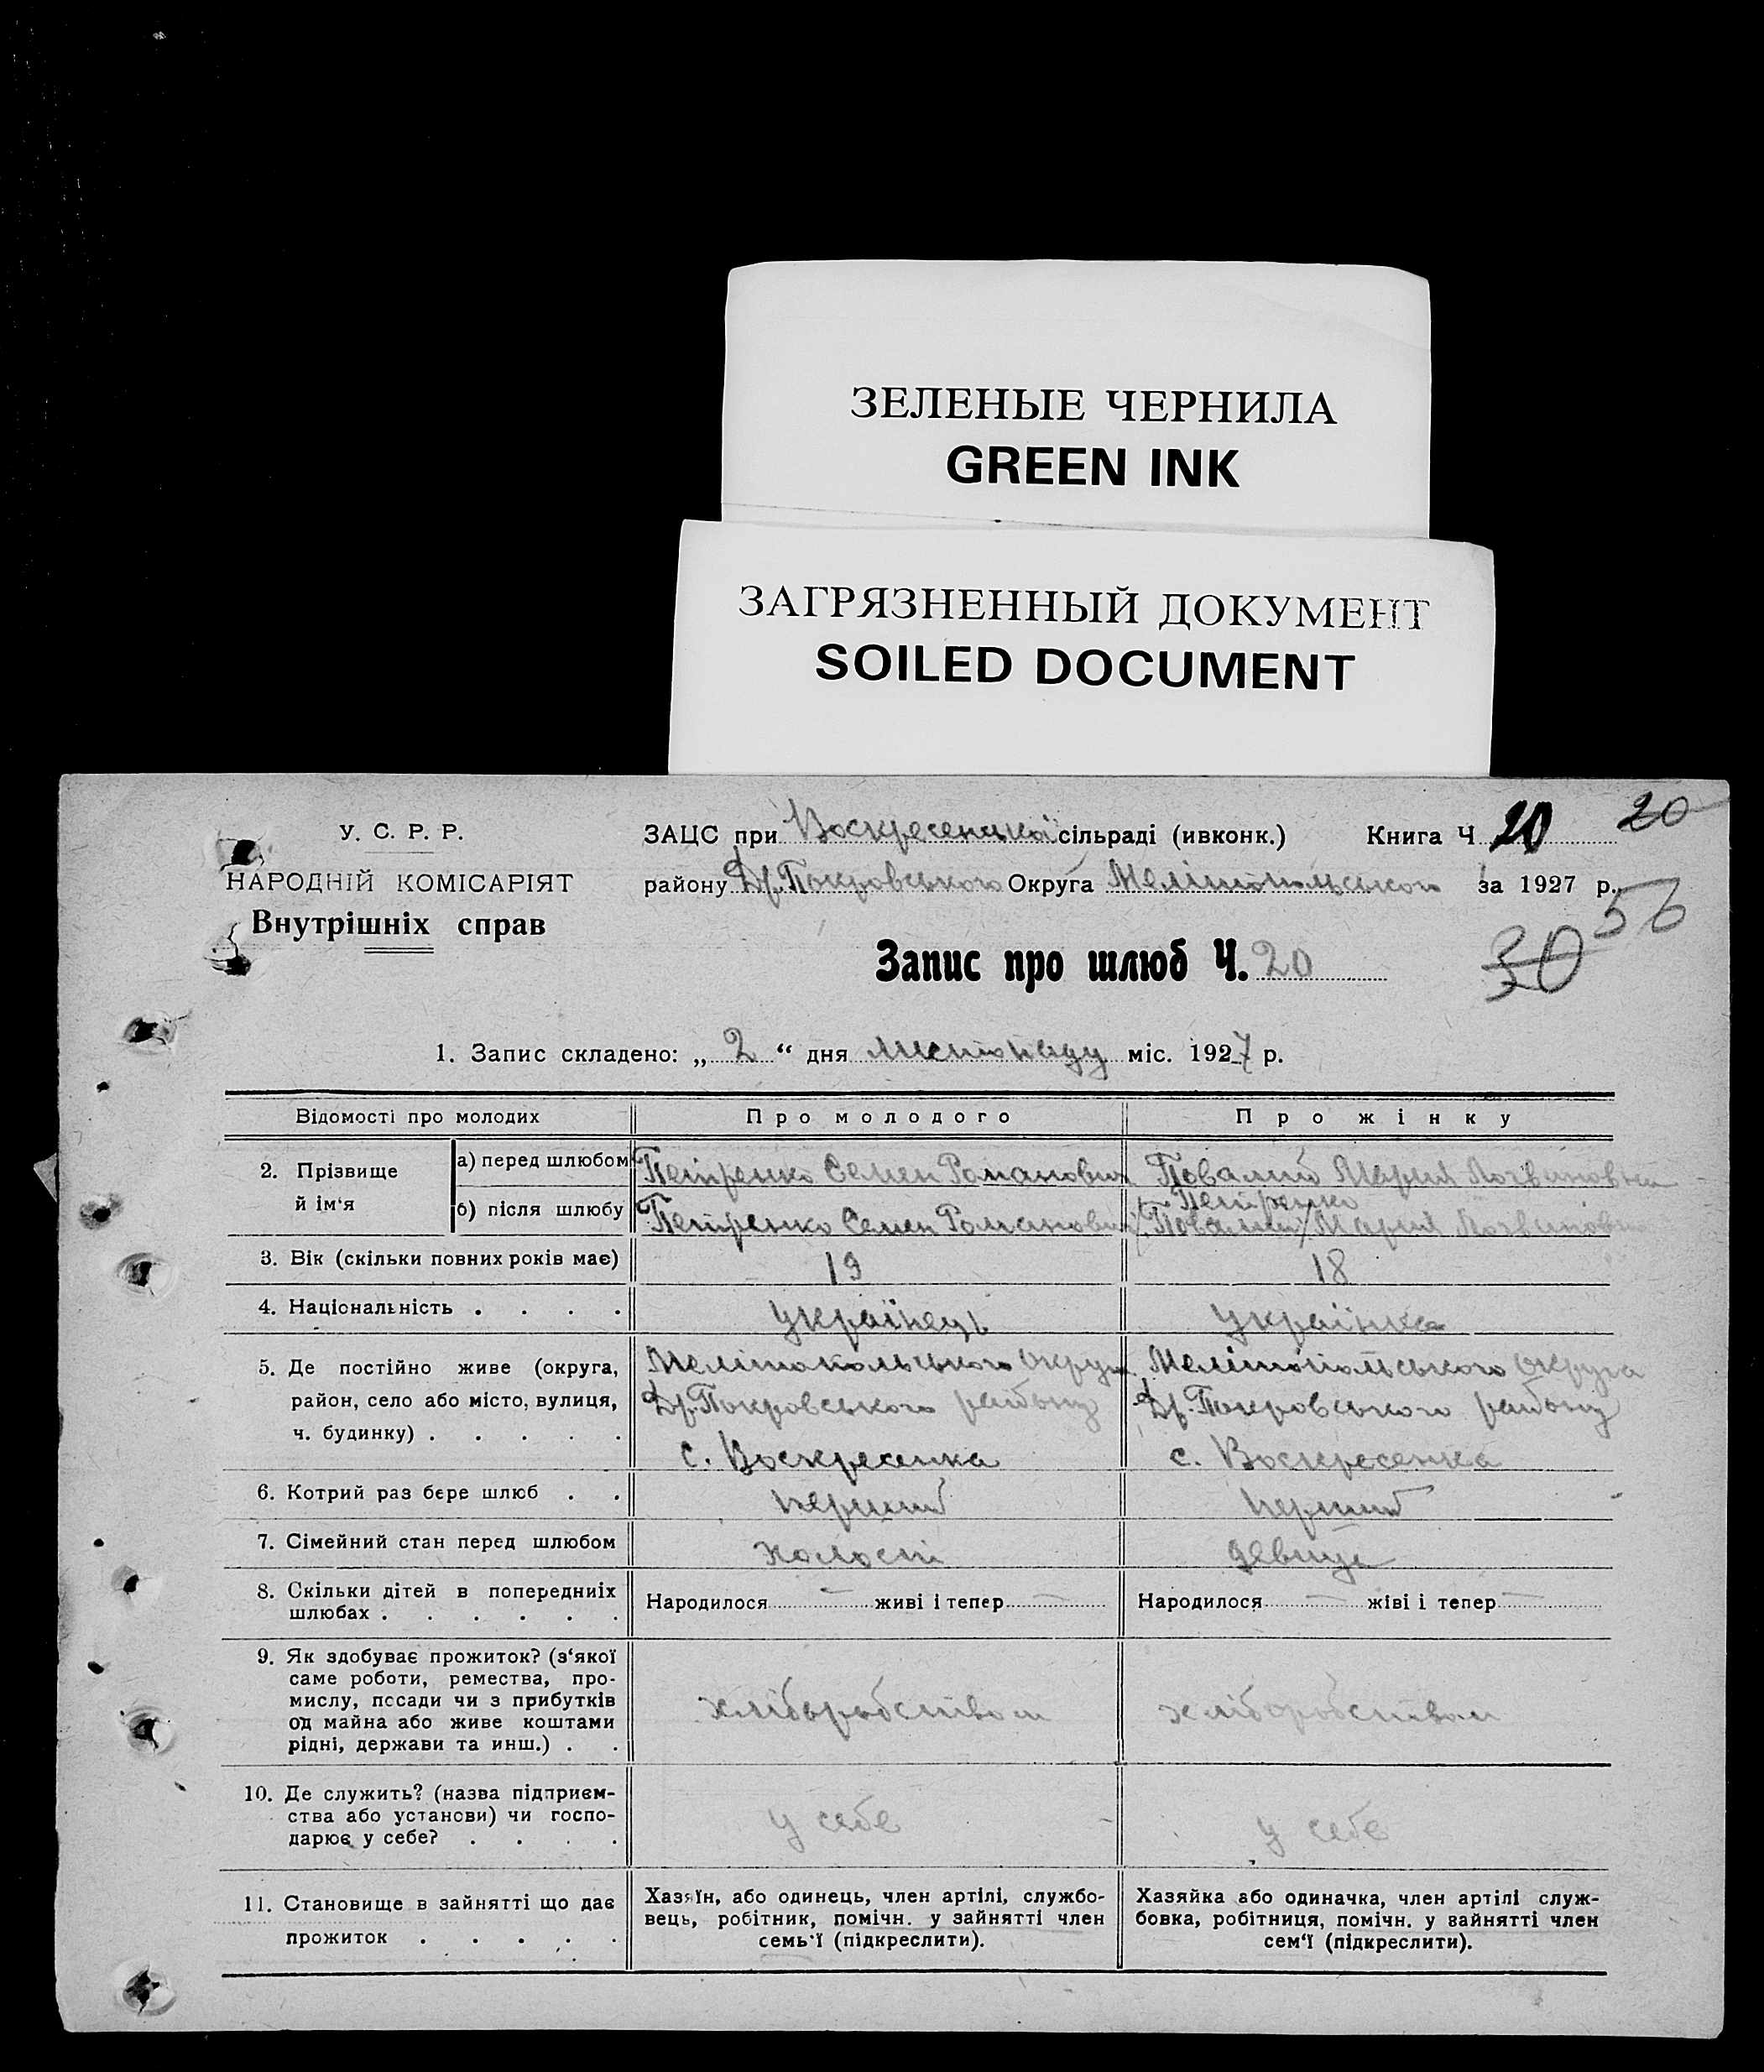 ЗЕЛЕНЫЕ ЧЕРНИЛА
GREEN INK
ЗАГРЯЗНЕННЫЙ ДОКУМЕНТ
SOILED DOCUMENT
У. С. Р. Р.
НАРОДНІЙ КОМІСАРІЯТ
Внутрішніх справ
ЗАЦС при Воскресенській сільраді (ивконк.) Книга Ч 20 20
району Др. Покровського Округа Мелітопольського за 1927 р.
56
Запис про шлюб Ч. 20
30
1. Запис складено: „ 2 “ дня листопаду міс. 1927 р.
Відомості про молодих
Про молодого
Про жінку
2. Прізвище й ім‘я
а) перед шлюбом
Петренко Семен Романович
Повалий Мария Логвиновна
б) після шлюбу
Петренко Семен Романович
Петренко
/Повалий/ Мария Логвиновна
3. Вік (скільки повних років має)
19
18
4. Національність . . . .
Українець
Українка
5. Де постійно живе (округа,
район, село або місто, вулиця,
ч. будинку) . . . . .
Мелітопольського округа
Др. Покровського району
с. Воскресенка
Мелітопольського округа
Др. Покровського району
с. Воскресенка
6. Котрий раз бере шлюб . .
перший
перший
7. Сімейний стан перед шлюбом
холості
девица
8. Скільки дітей в попередниіх
шлюбах . . . . . .
Народилося — живі і тепер —
Народилося — жіві і тепер —
9. Як здобуває прожиток? (з‘якої
саме роботи, ремества, про-
мислу, посади чи з прибутків
од майна або живе коштами
рідні, держави та инш.) . .
хліборобством
хліборобством
10. Де служить? (назва підприєм-
ства або установи) чи госпо-
дарює у себе? . . . .
у себе
у себе
11. Становище в зайнятті що дає
прожиток . . . . .
Хазяїн, або одинець, член артілі, службо-
вець, робітник, помічн. у зайнятті член
семь‘ї (підкреслити).
Хазяйка або одиначка, член артілі служ-
бовка, робітниця, помічн. у зайнятті член
сем‘ї (підкреслити).